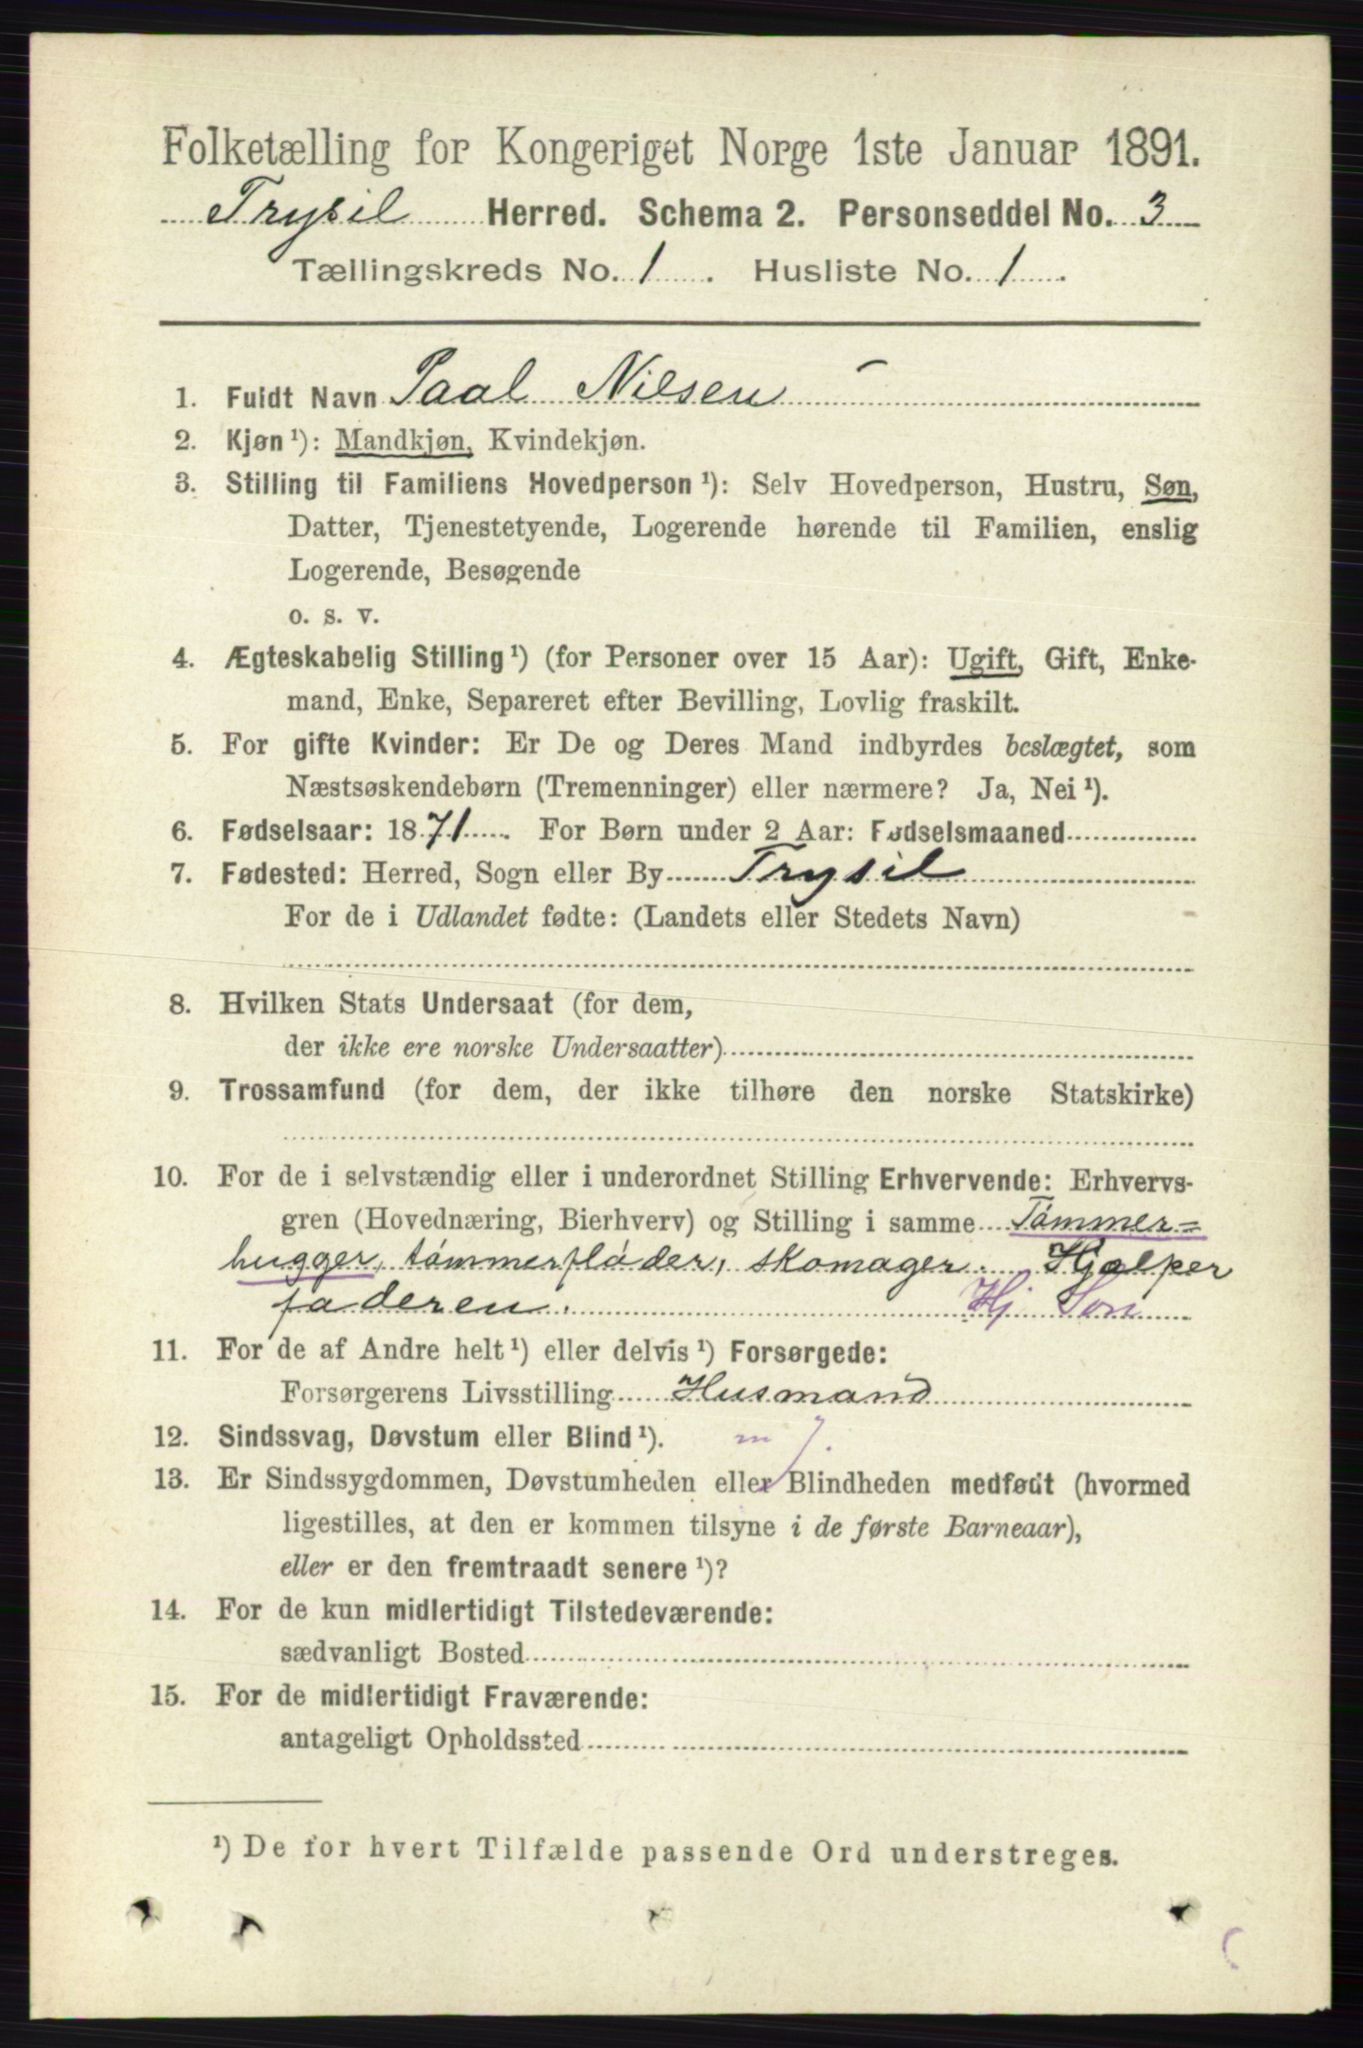 Folketælling for Kongeriget Norge 1ste Januar 1891.
Trysil Herred. Schema 2. Personseddel No. 3
Tællingskreds No. 1. Husliste No. 1.
1. Fuldt Navn Paal Nilsen
2. Kjøn¹): Mandkjøn, Kvindekjøn.
3. Stilling til Familiens Hovedperson¹): Selv Hovedperson, Hustru, Søn,
Datter, Tjenestetyende, Logerende hørende til Familien, enslig
Logerende, Besøgende
o. s. v.
4. Ægteskabelig Stilling¹) (for Personer over 15 Aar): Ugift, Gift, Enke-
mand, Enke, Separeret efter Bevilling, Lovlig fraskilt.
5. For gifte Kvinder: Er De og Deres Mand indbyrdes beslægtet, som
Næstsøskendebørn (Tremenninger) eller nærmere? Ja, Nei¹).
6. Fødselsaar: 1871. For Børn under 2 Aar: Fødselsmaaned
7. Fødested: Herred, Sogn eller By Trysil
For de i Udlandet fødte: (Landets eller Stedets Navn)
8. Hvilken Stats Undersaat (for dem,
der ikke ere norske Undersaatter)
9. Trossamfund (for dem, der ikke tilhøre den norske Statskirke)
10. For de i selvstændig eller i underordnet Stilling Erhvervende: Erhvervs-
gren (Hovednæring, Bierhverv) og Stilling i samme Tømmer=
hugger, tømmerfløder, skomager. Hjælper
faderen. Hj Søn
11. For de af Andre helt¹) eller delvis¹) Forsørgede:
Forsørgerens Livsstilling Husmand
12. Sindssvag, Døvstum eller Blind¹).
13. Er Sindssygdommen, Døvstumheden eller Blindheden medfødt (hvormed
ligestilles, at den er kommen tilsyne i de første Barneaar),
eller er den fremtraadt senere¹)?
14. For de kun midlertidigt Tilstedeværende:
sædvanligt Bosted
15. For de midlertidigt Fraværende:
antageligt Opholdssted
¹) De for hvert Tilfælde passende Ord understreges.